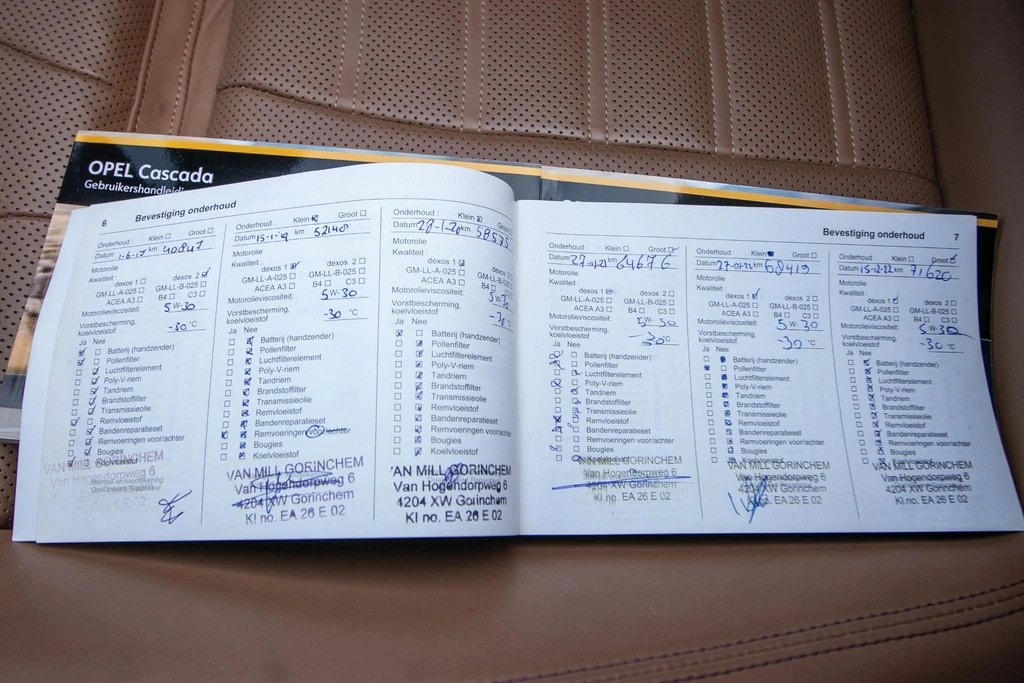 OPEL Cascada
Gebruikershandleidi
6 Bevestiging onderhoud
Onderhoud : Klein Groot
Datum 1-6-17 km 40847
Motorolie
Kwaliteit : dexos 1 dexos 2
GM-LL-A-025 GM-LL-B-025
ACEA A3 B4 C3
Motorolieviscositeit: 5W-30
Vorstbescherming,
koelvloeistof -30 °C
Ja Nee
Batterij (handzender)
Pollenfilter
Luchtfilterelement
Poly-V-riem
Tandriem
Brandstoffilter
Transmissieolie
Remvloeistof
Bandenreparatieset
Remvoeringen voor/achter
Bougies
Koelvloeistof
VAN MILL GORINCHEM
Van Hogendorpweg 6
Onderhoud : Klein Groot
Datum 15-1-19 km 52148
Motorolie
Kwaliteit :
dexos 1 dexos 2
GM-LL-A-025 GM-LL-B-025
ACEA A3 B4 C3
Motorolieviscositeit: 5W-30
Vorstbescherming,
koelvloeistof -30 °C
Ja Nee
Batterij (handzender)
Pollenfilter
Luchtfilterelement
Poly-V-riem
Tandriem
Brandstoffilter
Transmissieolie
Remvloeistof
Bandenreparatieset
Remvoeringen voor/achter
Bougies
Koelvloeistof
VAN MILL GORINCHEM
Van Hogendorpweg 6
4204 XW Gorinchem
Kl no. EA 26 E 02
Onderhoud : Klein Groot
Datum 28-1-20 km 58535
Motorolie
Kwaliteit :
dexos 1 dexos 2
GM-LL-A-025 GM-LL-B-025
ACEA A3 B4 C3
Motorolieviscositeit: 5W-30
Vorstbescherming,
koelvloeistof
Ja Nee
Batterij (handzender)
Pollenfilter
Luchtfilterelement
Poly-V-riem
Tandriem
Brandstoffilter
Transmissieolie
Remvloeistof
Bandenreparatieset
Remvoeringen voor/achter
Bougies
Koelvloeistof
VAN MILL GORINCHEM
Van Hogendorpweg 6
4204 XW Gorinchem
Kl no. EA 26 E 02
Bevestiging onderhoud 7
Onderhoud : Klein Groot
Datum km 64676
Motorolie
Kwaliteit :
dexos 1 dexos 2
GM-LL-A-025 GM-LL-B-025
ACEA A3 B4 C3
Motorolieviscositeit: 5W-30
Vorstbescherming,
koelvloeistof -30 °C
Ja Nee
Batterij (handzender)
Pollenfilter
Luchtfilterelement
Poly-V-riem
Tandriem
Brandstoffilter
Transmissieolie
Remvloeistof
Bandenreparatieset
Remvoeringen voor/achter
Bougies
Koelvloeistof
VAN MILL GORINCHEM
Van Hogendorpweg 6
4204 XW Gorinchem
Kl no. EA 26 E 02
Onderhoud : Klein Groot
Datum km 68419
Motorolie
Kwaliteit :
dexos 1 dexos 2
GM-LL-A-025 GM-LL-B-025
ACEA A3 B4 C3
Motorolieviscositeit: 5W-30
Vorstbescherming,
koelvloeistof -30 °C
Ja Nee
Batterij (handzender)
Pollenfilter
Luchtfilterelement
Poly-V-riem
Tandriem
Brandstoffilter
Transmissieolie
Remvloeistof
Bandenreparatieset
Remvoeringen voor/achter
Bougies
VAN MILL GORINCHEM
Van Hogendorpweg 6
4204 XW Gorinchem
Kl no. EA 26 E 02
Onderhoud : Klein Groot
Datum 15-12-22 km 71620
Motorolie
Kwaliteit :
dexos 1 dexos 2
GM-LL-A-025 GM-LL-B-025
ACEA A3 B4 C3
Motorolieviscositeit: 5W-30
Vorstbescherming,
koelvloeistof -30 °C
Ja Nee
Batterij (handzender)
Pollenfilter
Luchtfilterelement
Poly-V-riem
Tandriem
Brandstoffilter
Transmissieolie
Remvloeistof
Bandenreparatieset
Remvoeringen voor/achter
Bougies
VAN MILL GORINCHEM
Van Hogendorpweg 6
4204 XW Gorinchem
Kl no. EA 26 E 02